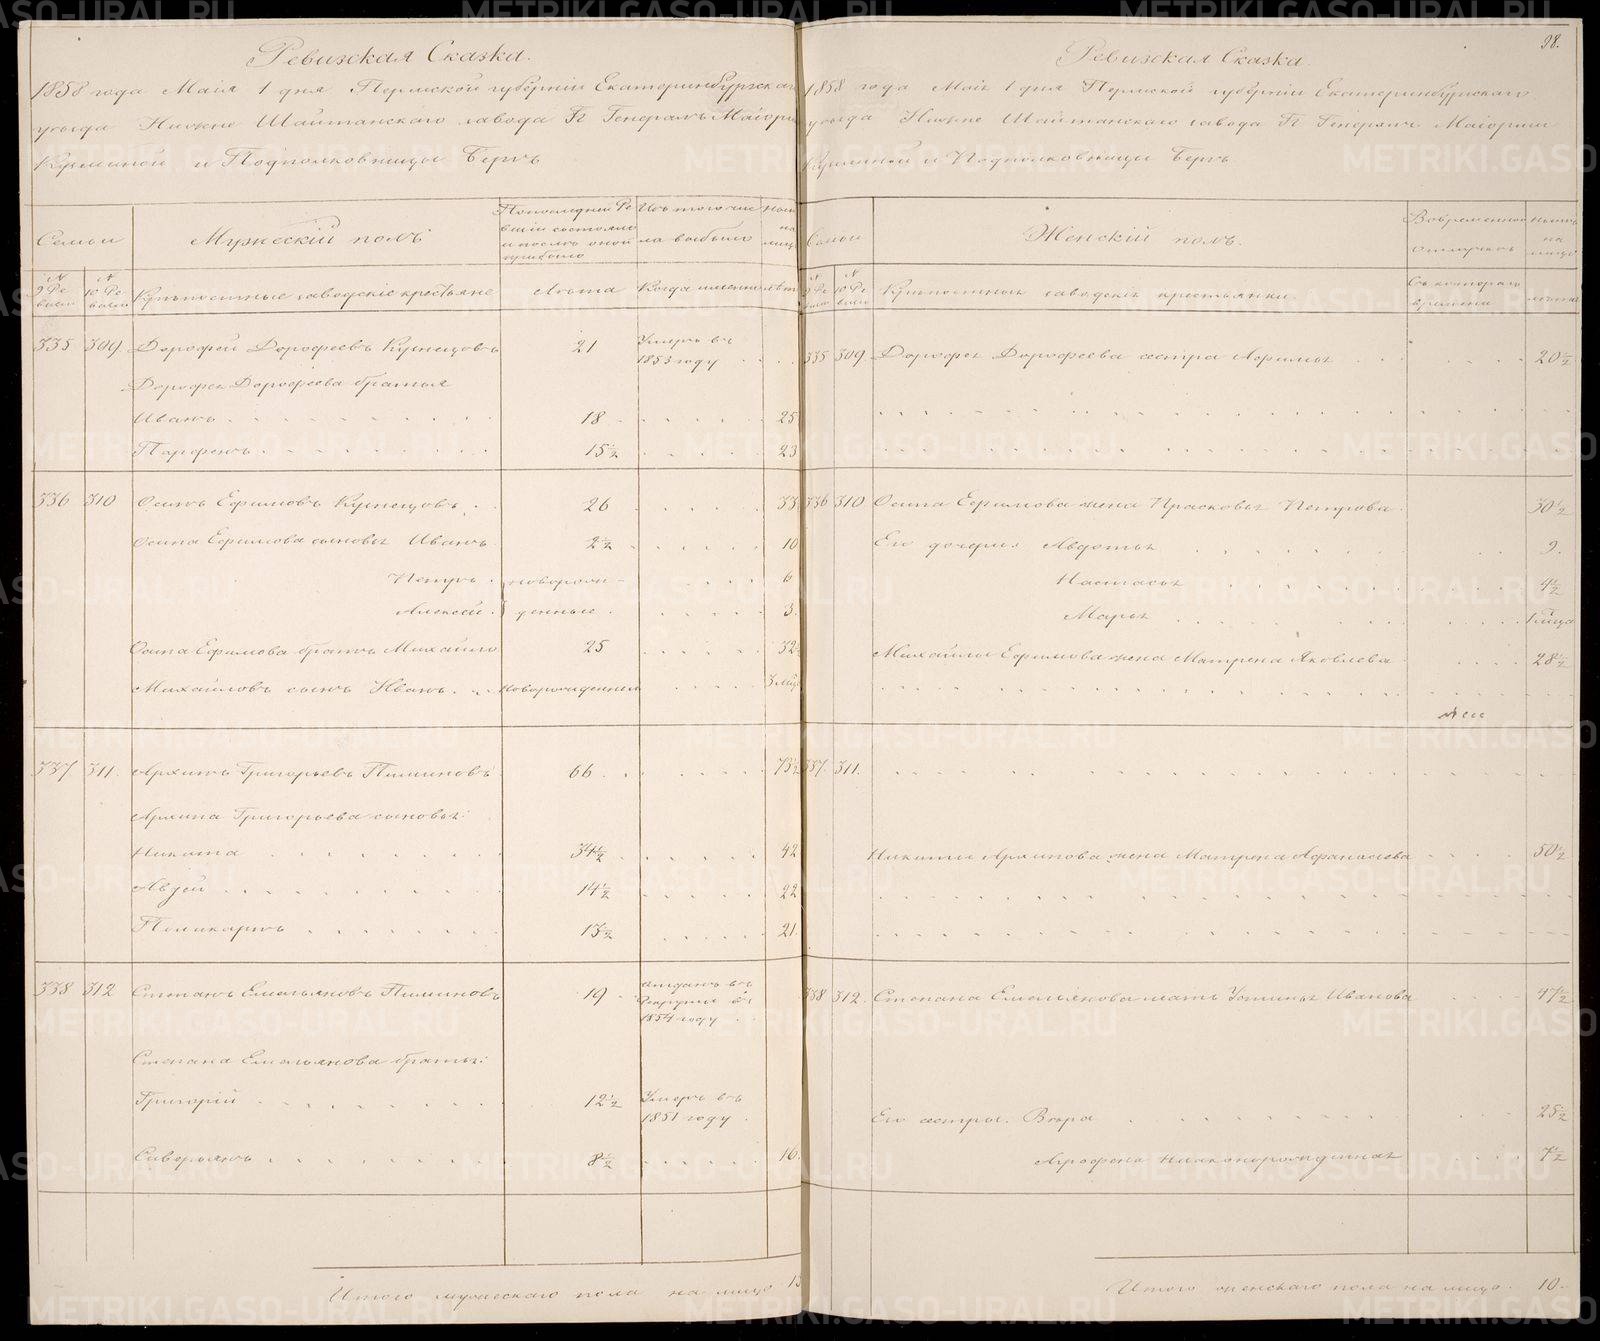 98.
Ревизская Сказка.
1858 года Маія 1 дня Пермской губерніи Екатеринбургскаго
уезда Нижне Шайтанскаго завода Гг Генералъ Маіорши
Кузминой и Подполковницы Бергъ
Семьи
Мужескій полъ
По последней Ре
визіи состояло
и после оной
прибыло
Изъ того чис
ла выбыло
Ныне
на
лицо
N
9 Ре
визіи
N
10 Ре
визіи
Крепостные заводскіе крестьяне
Лета
Когда именно
лета
335 309 Дорофей Дорофеевъ Кузнецовъ 21 Умеръ въ
1853 году
Дорофея Дорофеева братья
Иванъ 18 25
Парфенъ 15½ 23
336 310 Осипъ Ефимовъ Кузнецовъ 26 33
Осипа Ефимова сыновья Иванъ 2½ 10
Петръ новорож- 6
Алексей денные 3
Осипа Ефимова братъ Михайло 25 32
Михайловъ сынъ Иванъ новорожденный 3 мес
337 311. Архипъ Григорьевъ Пиминовъ 66 73½
Архипа Григорьева сыновья:
Никита 34½ 42
Авдей 14½ 22
Поликарпъ 13½ 21
338 312 Степанъ Емельяновъ Пиминовъ 19 отданъ въ
рекруты въ
1854 году
Степана Емельянова братья:
Григорій 12½ Умеръ въ
1851 году
Сиверьянъ 8½ 16.
Итого мужескаго пола на лицо 13
Ревизская Сказка.
1858 года Маія 1 дня Пермской губерніи Екатеринбургскаго
уезда Нижне Шайтанскаго завода Гг Генералъ Маіорши
Кузминой и Подполковницы Бергъ
Семьи
Женскій полъ.
Во временной
отлучке
Ныне
на
лицо
N
9 Ре
визіи
N
10 Ре
визіи
Крепостныя заводскія крестьянки.
Съ котораго
времени
лета
335 309. Дорофея Дорофеева сестра Афимья 20½
336 310 Осипа Ефимова жена Прасковья Петрова 30½
Его дочери: Авдотья 9.
Настасья 4½
Марья
Михайлы Ефимова жена Матрена Яковлева 28½
337. 311.
Никиты Архипова жена Матрена Афанасьева 50½
338 312. Степана Емельянова мать Устинья Иванова 47½
Его сестры. Вера 25½
Аграфена 7½
Итого женскаго пола на лицо. 10.
METRIKI.GASO-URAL.RU